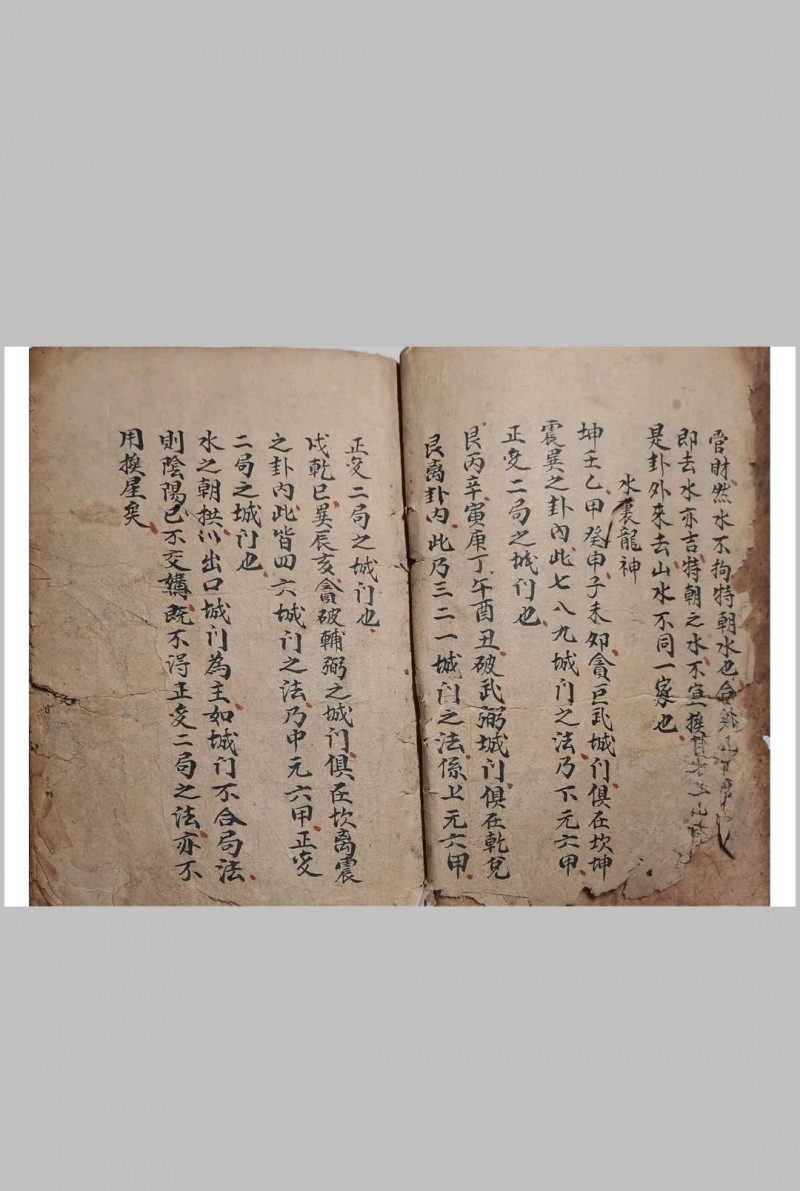 管財然水不拘特朝水也合
即去水亦吉特朝之水不宜挨
是卦外來去山水不同一家也
水裏龍神
坤壬乙甲癸申子未夘貪巨武城门俱在坎坤
震巽之卦內此七八九城门之法乃下元六甲
正变二局之城门也
艮丙辛寅庚丁午酉丑破武弼城门俱在乾兌
艮离卦內此乃三二一城门之法係上元六甲
正变二局之城门也
戌乾巳巽辰亥貪破輔弼之城门俱在坎离震
之卦內此皆四六城门之法乃中元六甲正变
二局之城门也
水之朝拱以出口城门為主如城门不合局法
則陰陽已不交媾既不得正变二局之法亦不
用挨星矣